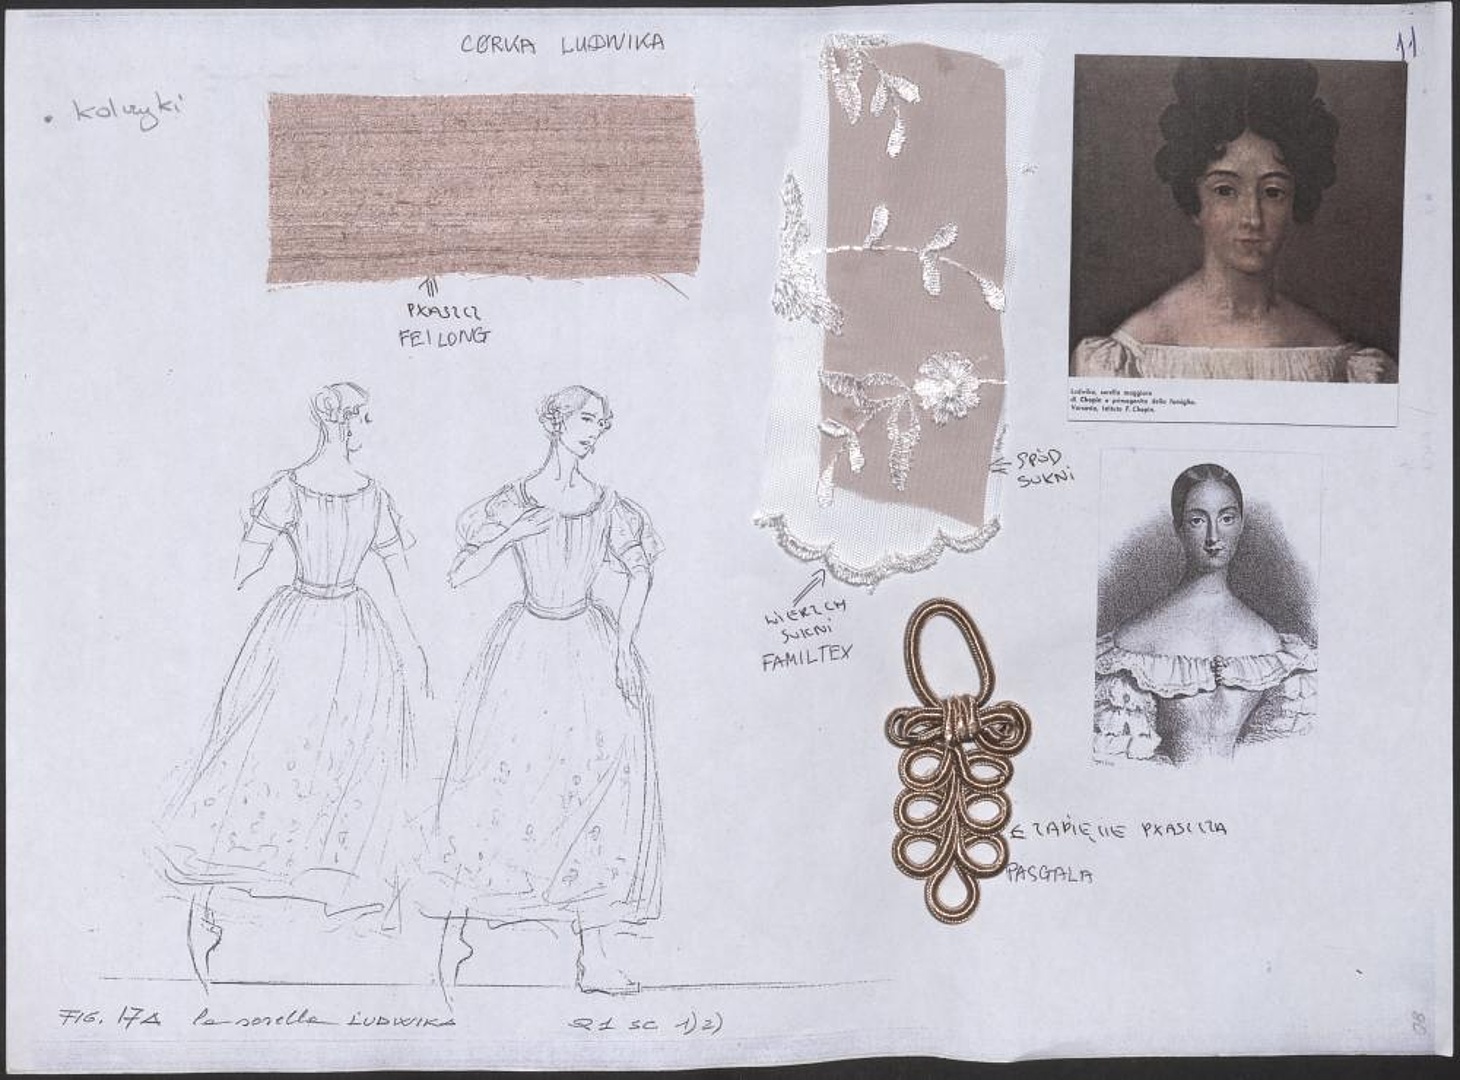 CORKA LUDWIKA
11
• kolczyki
PŁASZCZ
FEILONG
Ludwika, sorella maggiore
di Chopin e primogenita della famiglia.
Varsavia, Istituto F. Chopin.
SPÓD
SUKNI
WIERZCH
SUKNI
FAMILTEX
ZAPIĘCIE PŁASZCZA
PASGALA
FIG. 17A la sorella LUDWIKA
Q1 SC 1) 2)